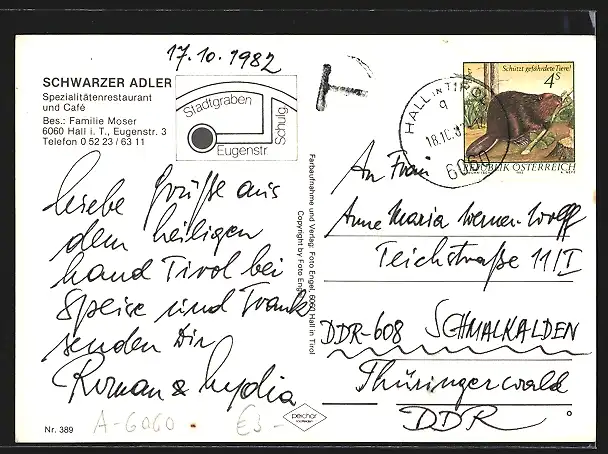 17.10.1982
SCHWARZER ADLER
Spezialitätenrestaurant
und Café
Bes.: Familie Moser
6060 Hall i. T., Eugenstr. 3
Telefon 0 52 23 / 63 11
Stadtgraben
Schulg.
Eugenstr.
T
HALL IN TIROL
18.10.8
6060
Schützt gefährdete Tiere!
4S
REPUBLIK ÖSTERREICH
Liebe Grüße aus
dem heiligen
Land Tirol bei
Speise und Trank
senden Dir
Roman & Lydia
Farbaufnahme und Verlag: Foto Engel, 6060 Hall in Tirol
Copyright by Foto Eng
An Frau
Anne Maria Werner-Wolff
Teichstraße 11/I
DDR-608 SCHMALKALDEN
Thüringerwald
DDR
Nr. 389
A-6060
€3-